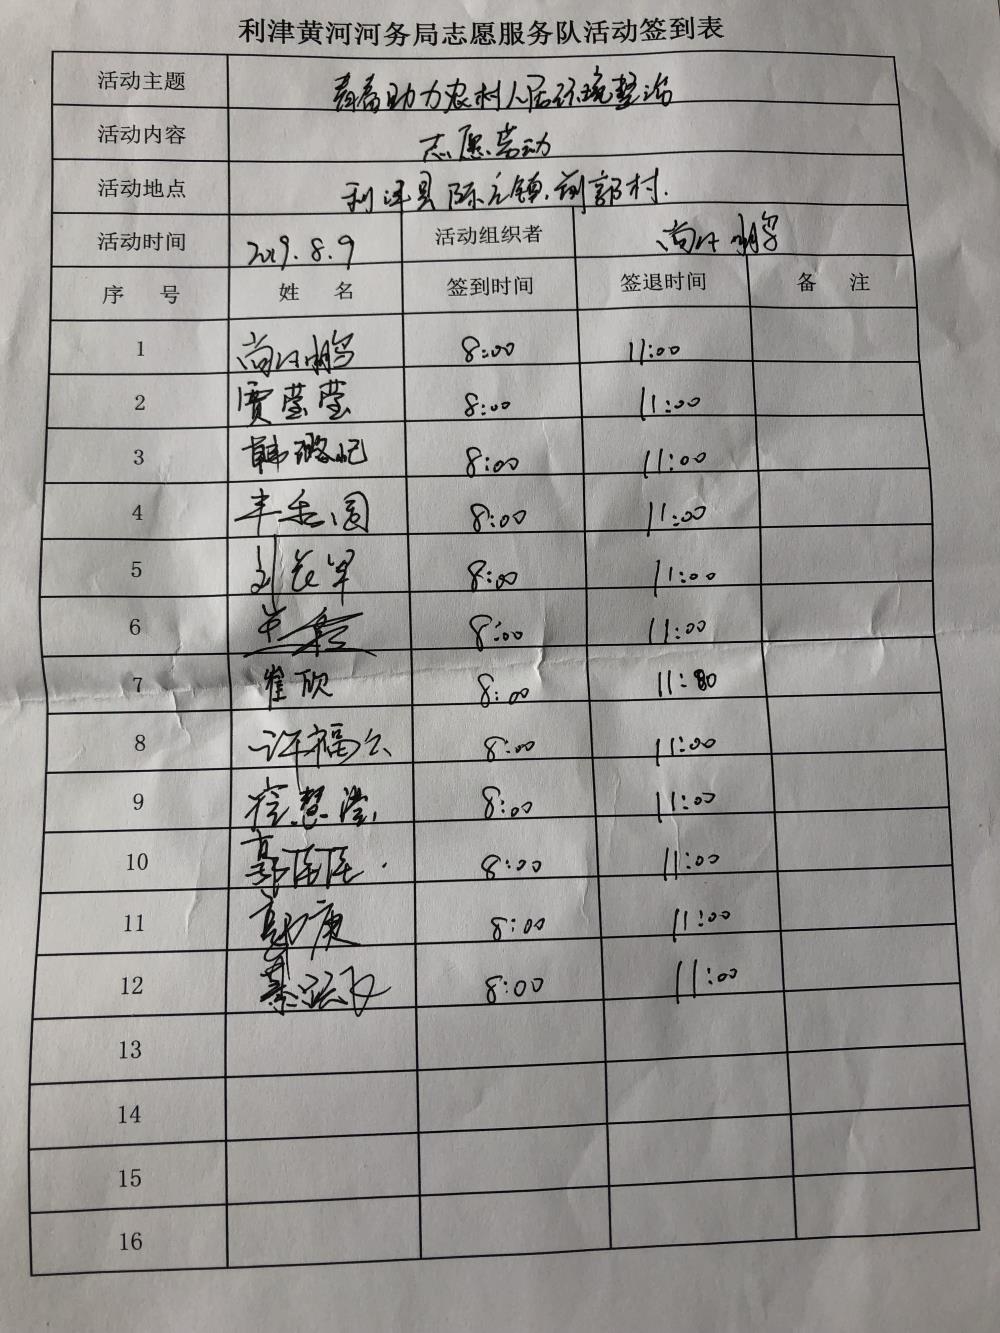 利津黄河河务局志愿服务队活动签到表
活动主题 青春助力农村人居环境整治
活动内容 志愿劳动
活动地点 利津县陈庄镇 郭村
活动时间 2019.8.9 活动组织者 尚
序 号 姓 名 签到时间 签退时间 备 注
1 尚 8:00 11:00
2 贾莹莹 8:00 11:00
3 韩璐 8:00 11:00
4 圆 8:00 11:00
5 刘 军 8:00 11:00
6 8:00 11:00
7 崔欣 8:00 11:00
8 许福公 8:00 11:00
9 慧滢 8:00 11:00
10 8:00 11:00
11 8:00 11:00
12 秦 8:00 11:00
13
14
15
16